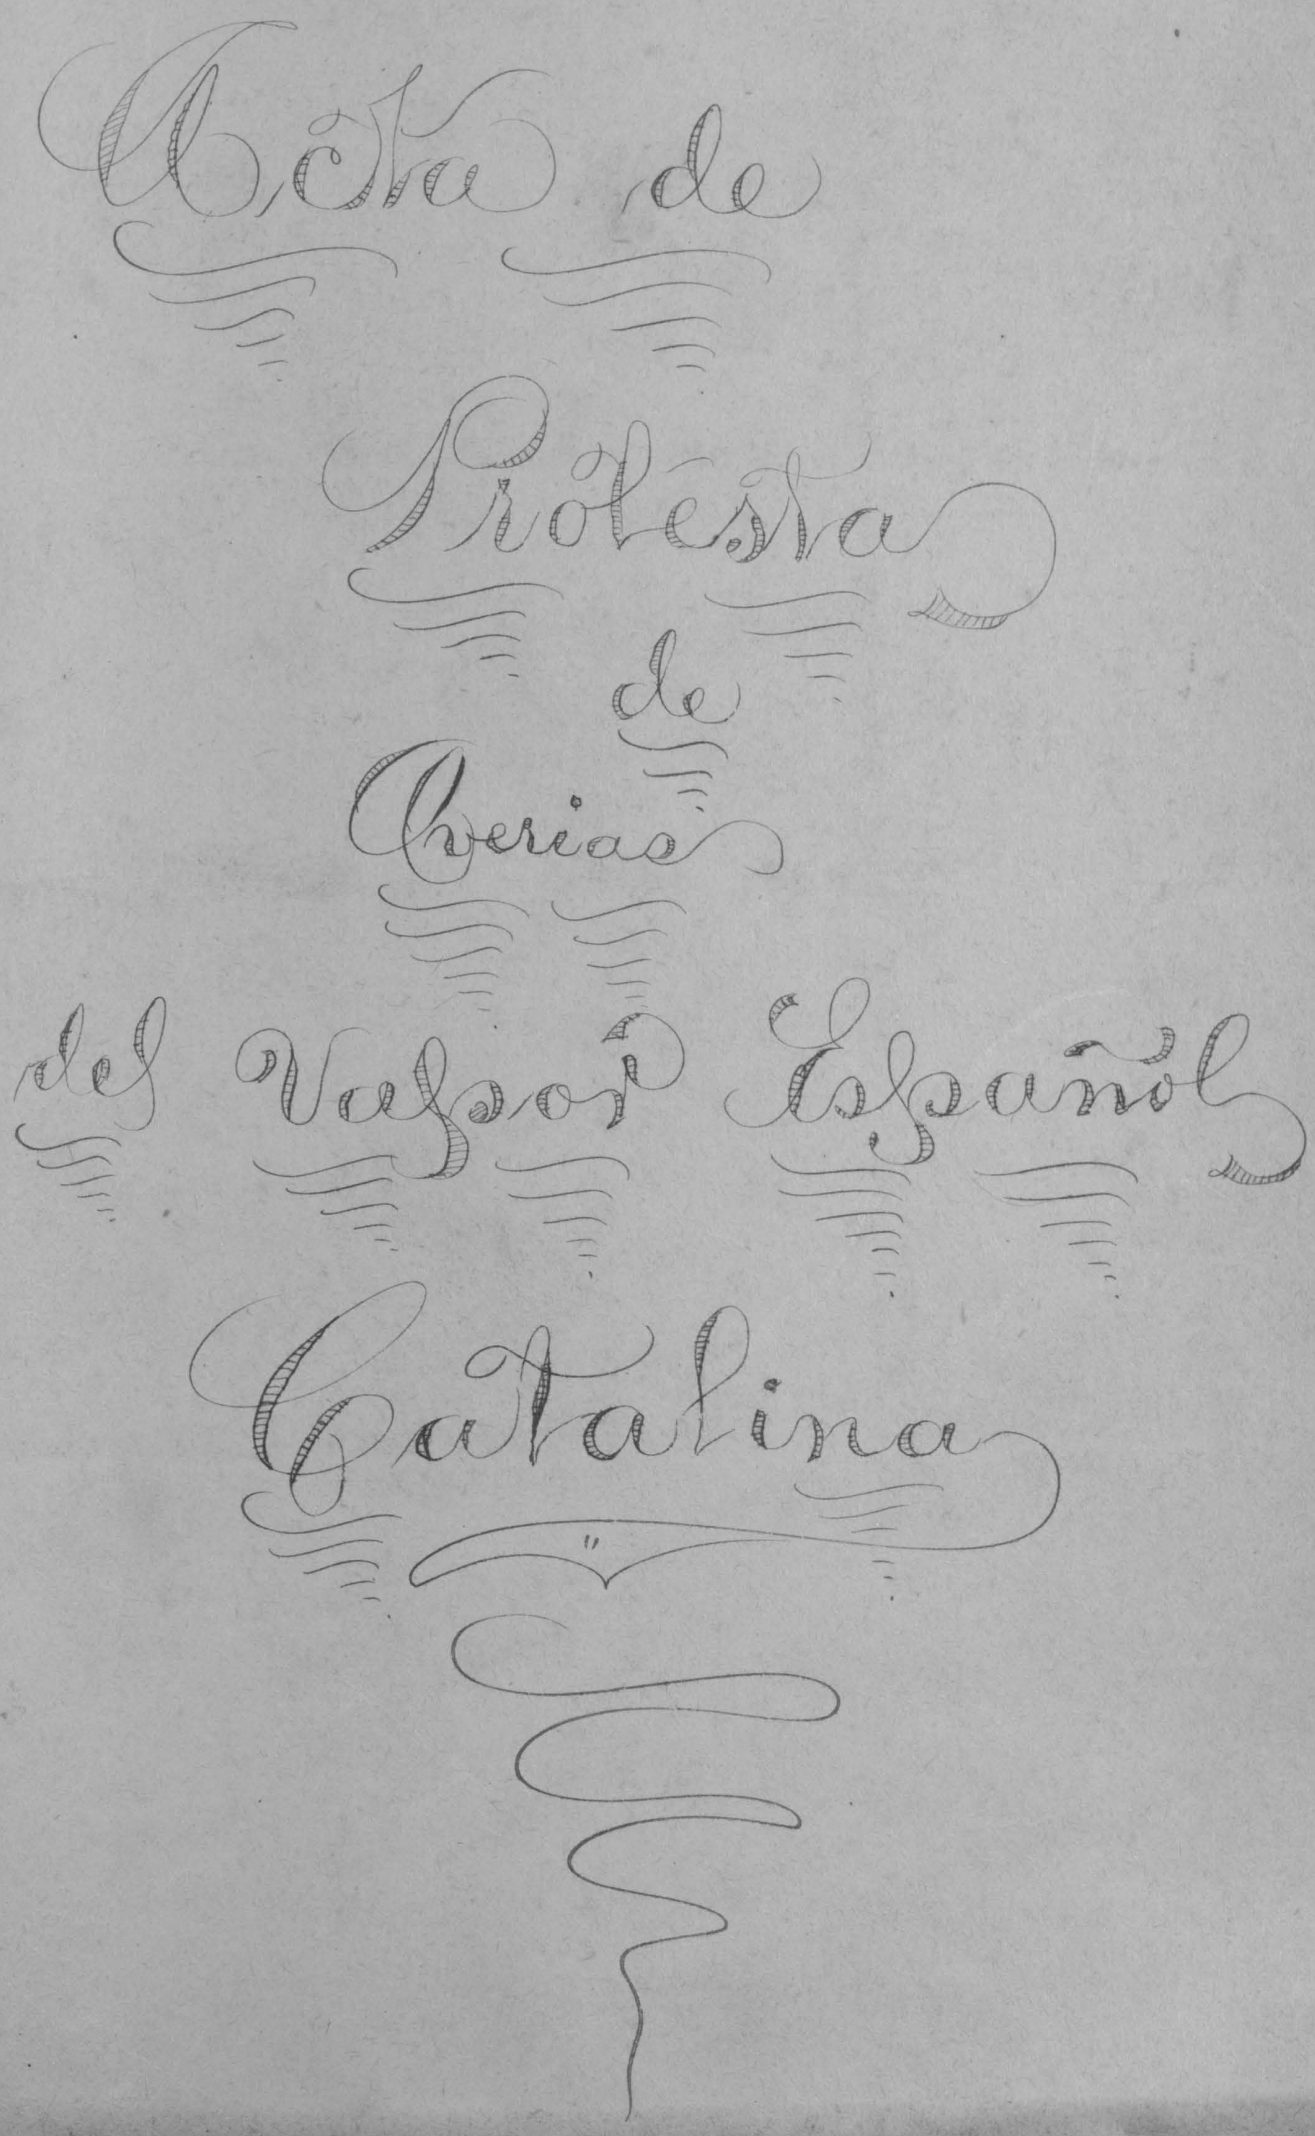 Acta de
Protesta
de
Averias
del Vapor Español
Catalina
"